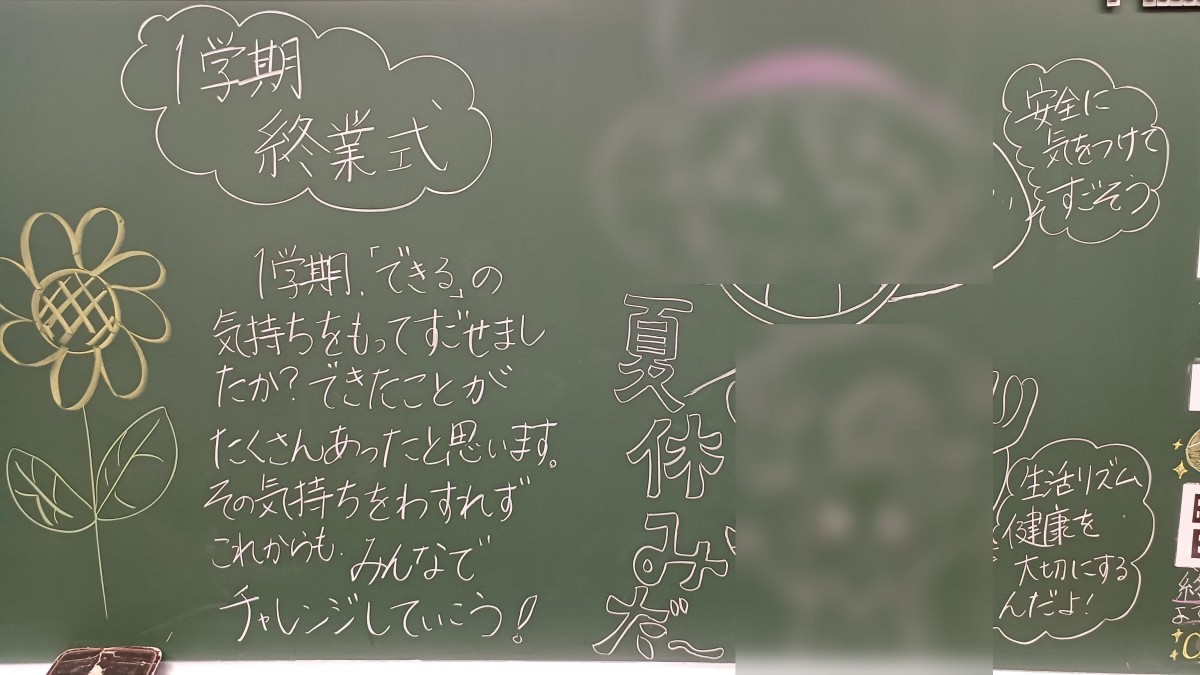 1学期
終業式
1学期、「できる」の
気持ちをもってすごせまし
たか？できたことが
たくさんあったと思います。
その気持ちをわすれず
これからも、みんなで
チャレンジしていこう！
夏休みだ〜
安全に
気をつけて
すごそう
生活リズム、
健康を
大切にする
んだよ！